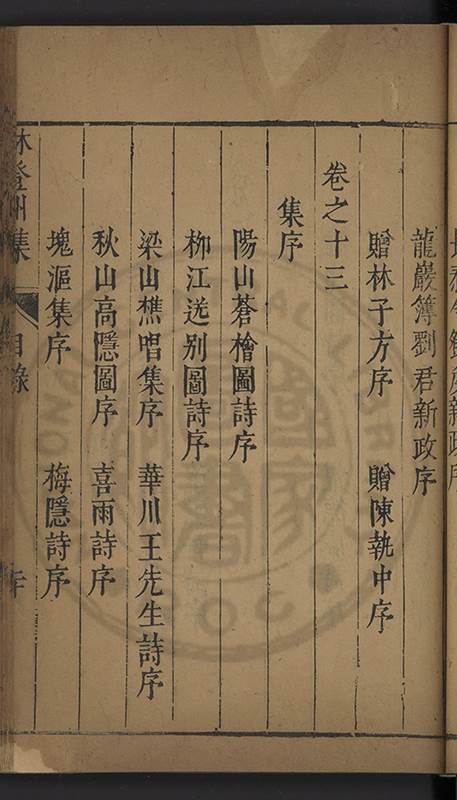 龍巖簿劉君新政序
贈林子方序 贈陳執中序
卷之十三
集序
陽山蒼檜圖詩序
柳江送别圖詩序
梁山樵唱集序 華川王先生詩序
秋山高隱圖序 喜雨詩序
塊漚集序 梅隱詩序
林登州集 目錄